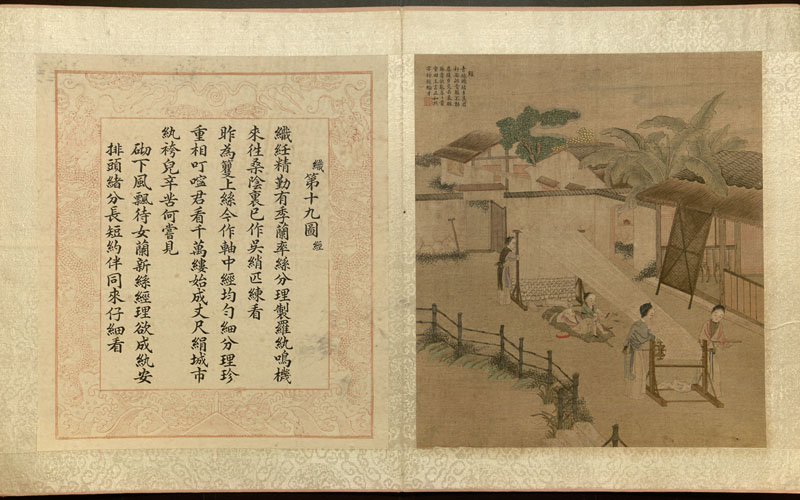 織第十九圖 經
織紝精勤有季蘭率絲分理製羅紈鳴機
來往桑陰裏已作吳綃匹練看
昨為籰上絲今作軸中經均勻細分理珍
重相叮嚀君看千萬縷始成丈尺絹城市
紈袴兒辛苦何嘗見
砌下風飄待女蘭新絲經理欲成紈安
排頭緒分長短約伴同來仔細看
經